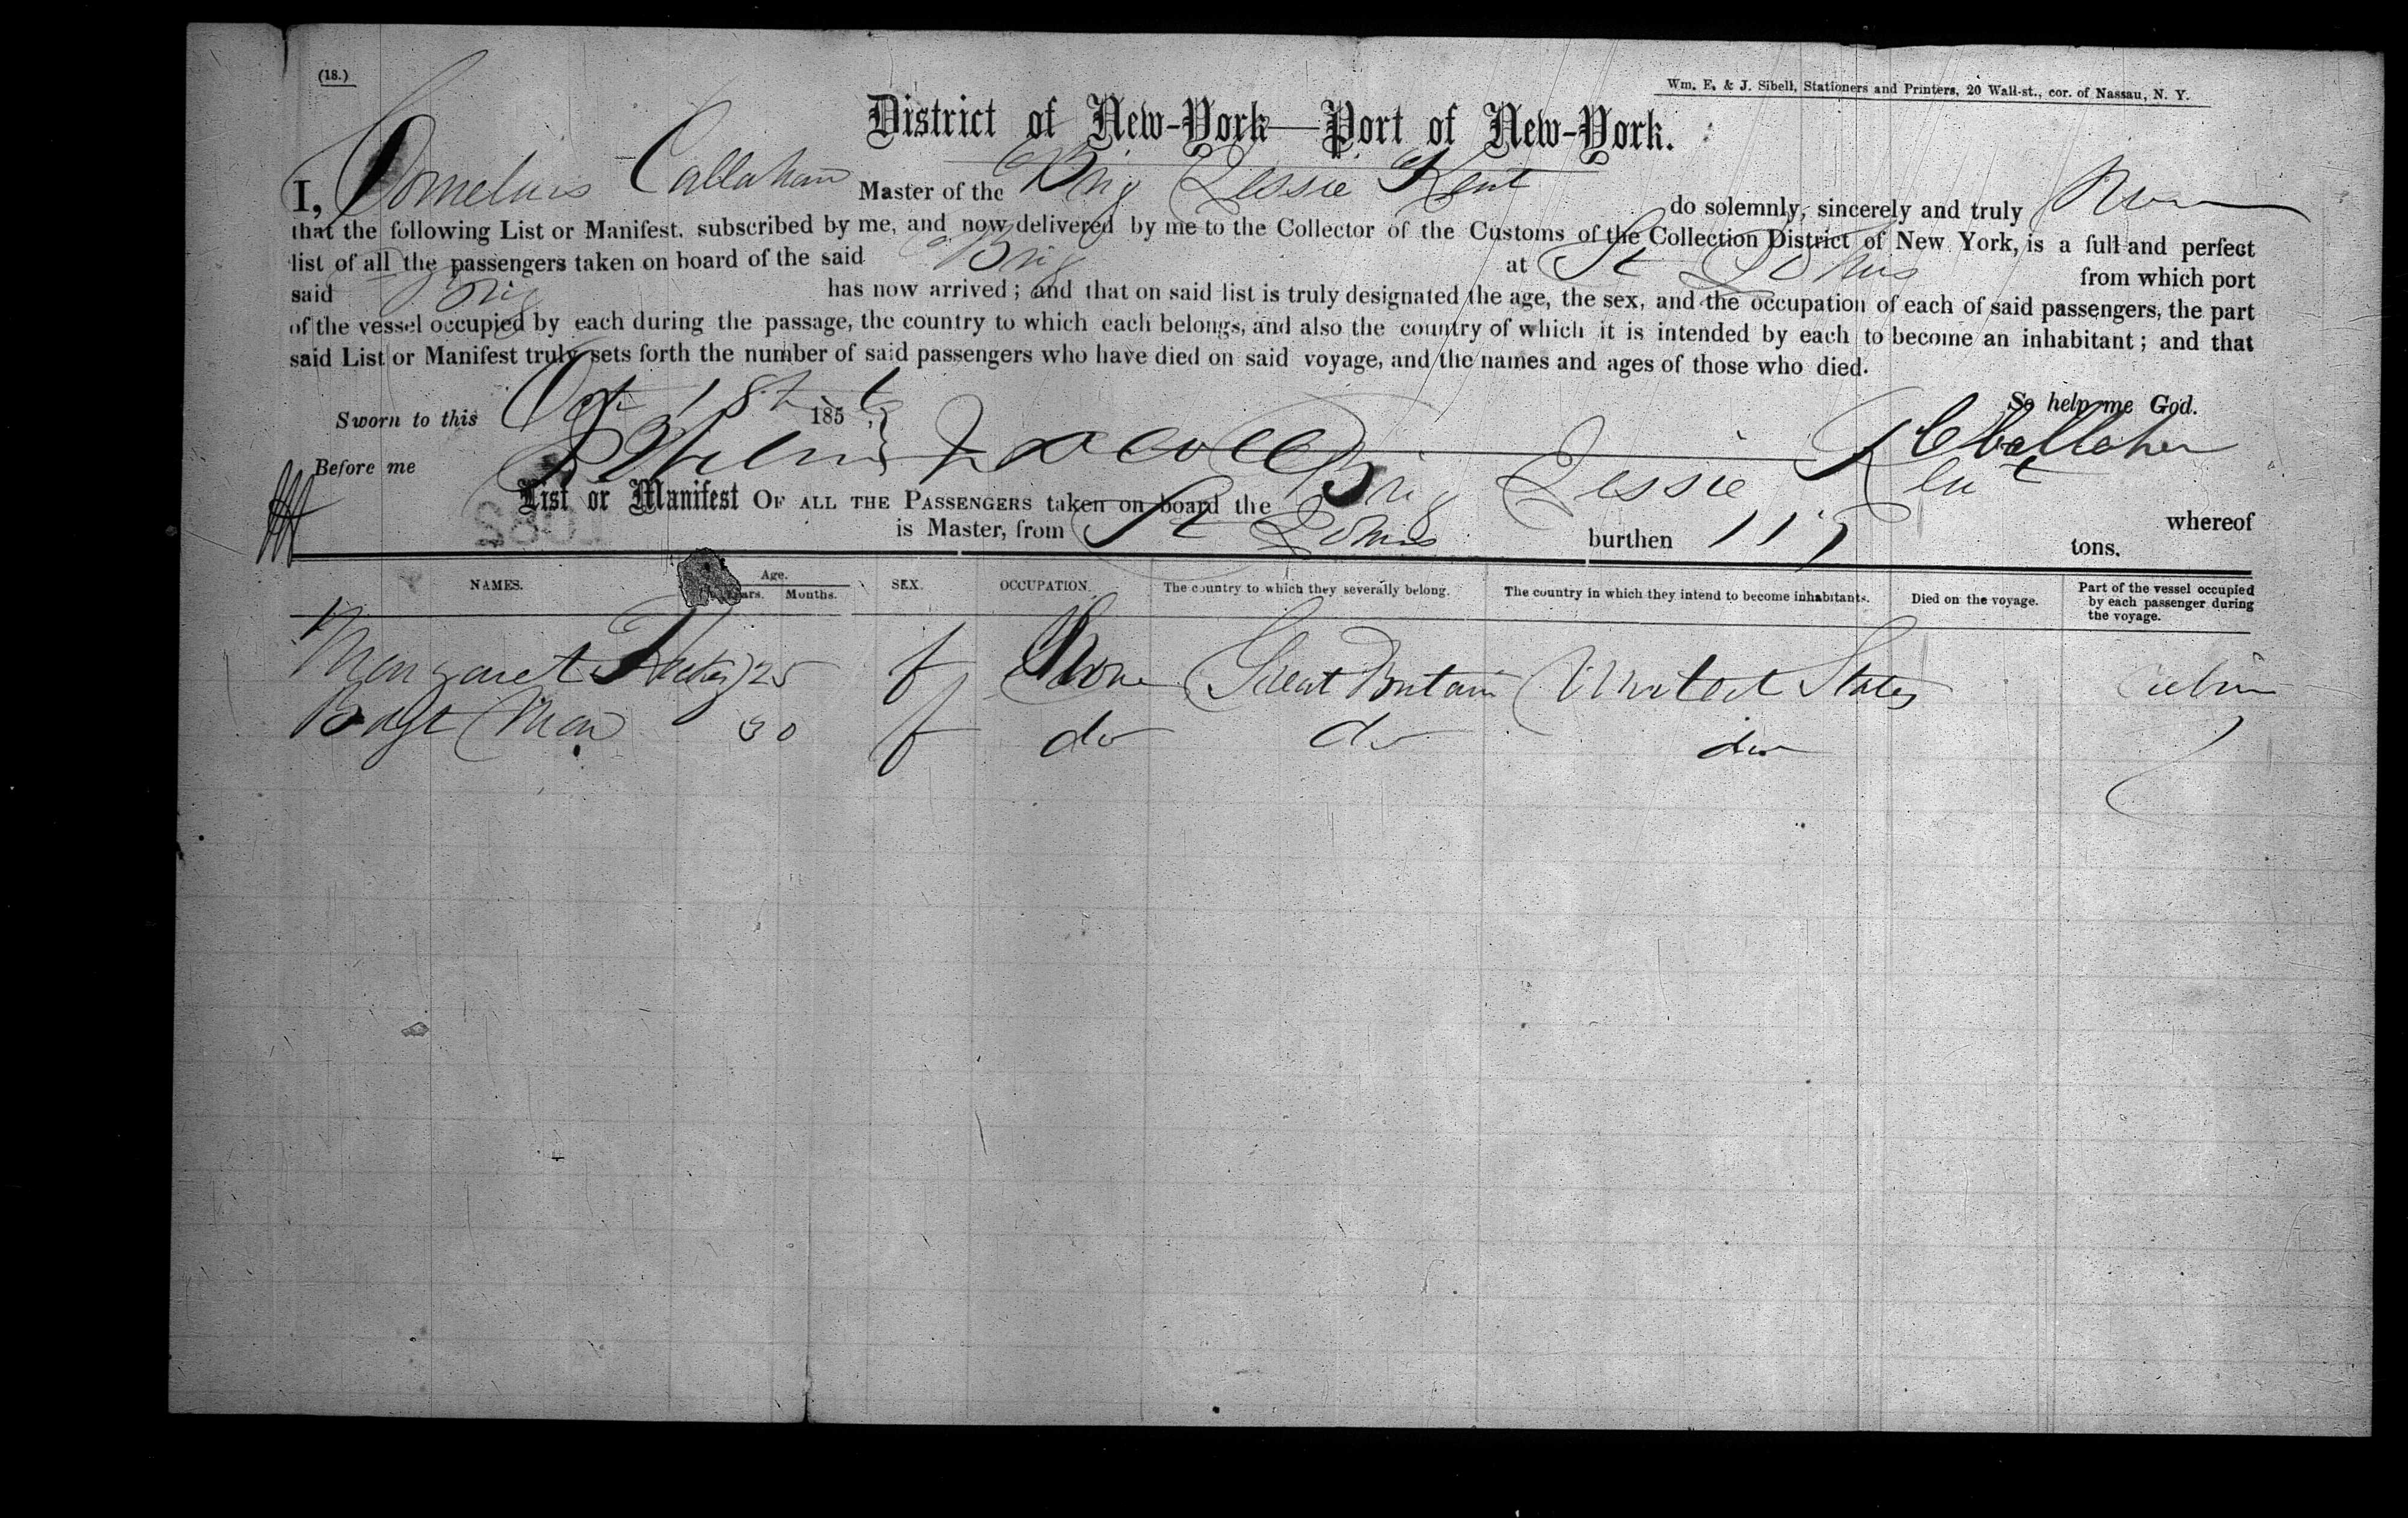 (18.)
Wm. E. & J. Sibell, Stationers and Printers, 20 Wall-st., cor. of Nassau, N. Y.
District of New-York—Port of New-York.
I, Cornelius Callahan Master of the Brig Jessie Kent do solemnly, sincerely and truly
that the following List or Manifest, subscribed by me, and now delivered by me to the Collector of the Customs of the Collection District of New York, is a full and perfect
list of all the passengers taken on board of the said Brig at St Johns from which port
said Brig has now arrived; and that on said list is truly designated the age, the sex, and the occupation of each of said passengers, the part
of the vessel occupied by each during the passage, the country to which each belongs, and also the country of which it is intended by each to become an inhabitant; and that
said List or Manifest truly sets forth the number of said passengers who have died on said voyage, and the names and ages of those who died.
So help me God.
Sworn to this Oct 18th 1856
Before me C Callahan
List or Manifest OF ALL THE PASSENGERS taken on board the Brig Jessie Kent whereof
is Master, from St Johns burthen 117 tons.
NAMES. Age. Years. Months. SEX. OCCUPATION. The country to which they severally belong. The country in which they intend to become inhabitants. Died on the voyage. Part of the vessel occupied by each passenger during the voyage.
Margaret 25 f None Great Britain United States Cabin
Bdgt 30 f do do do